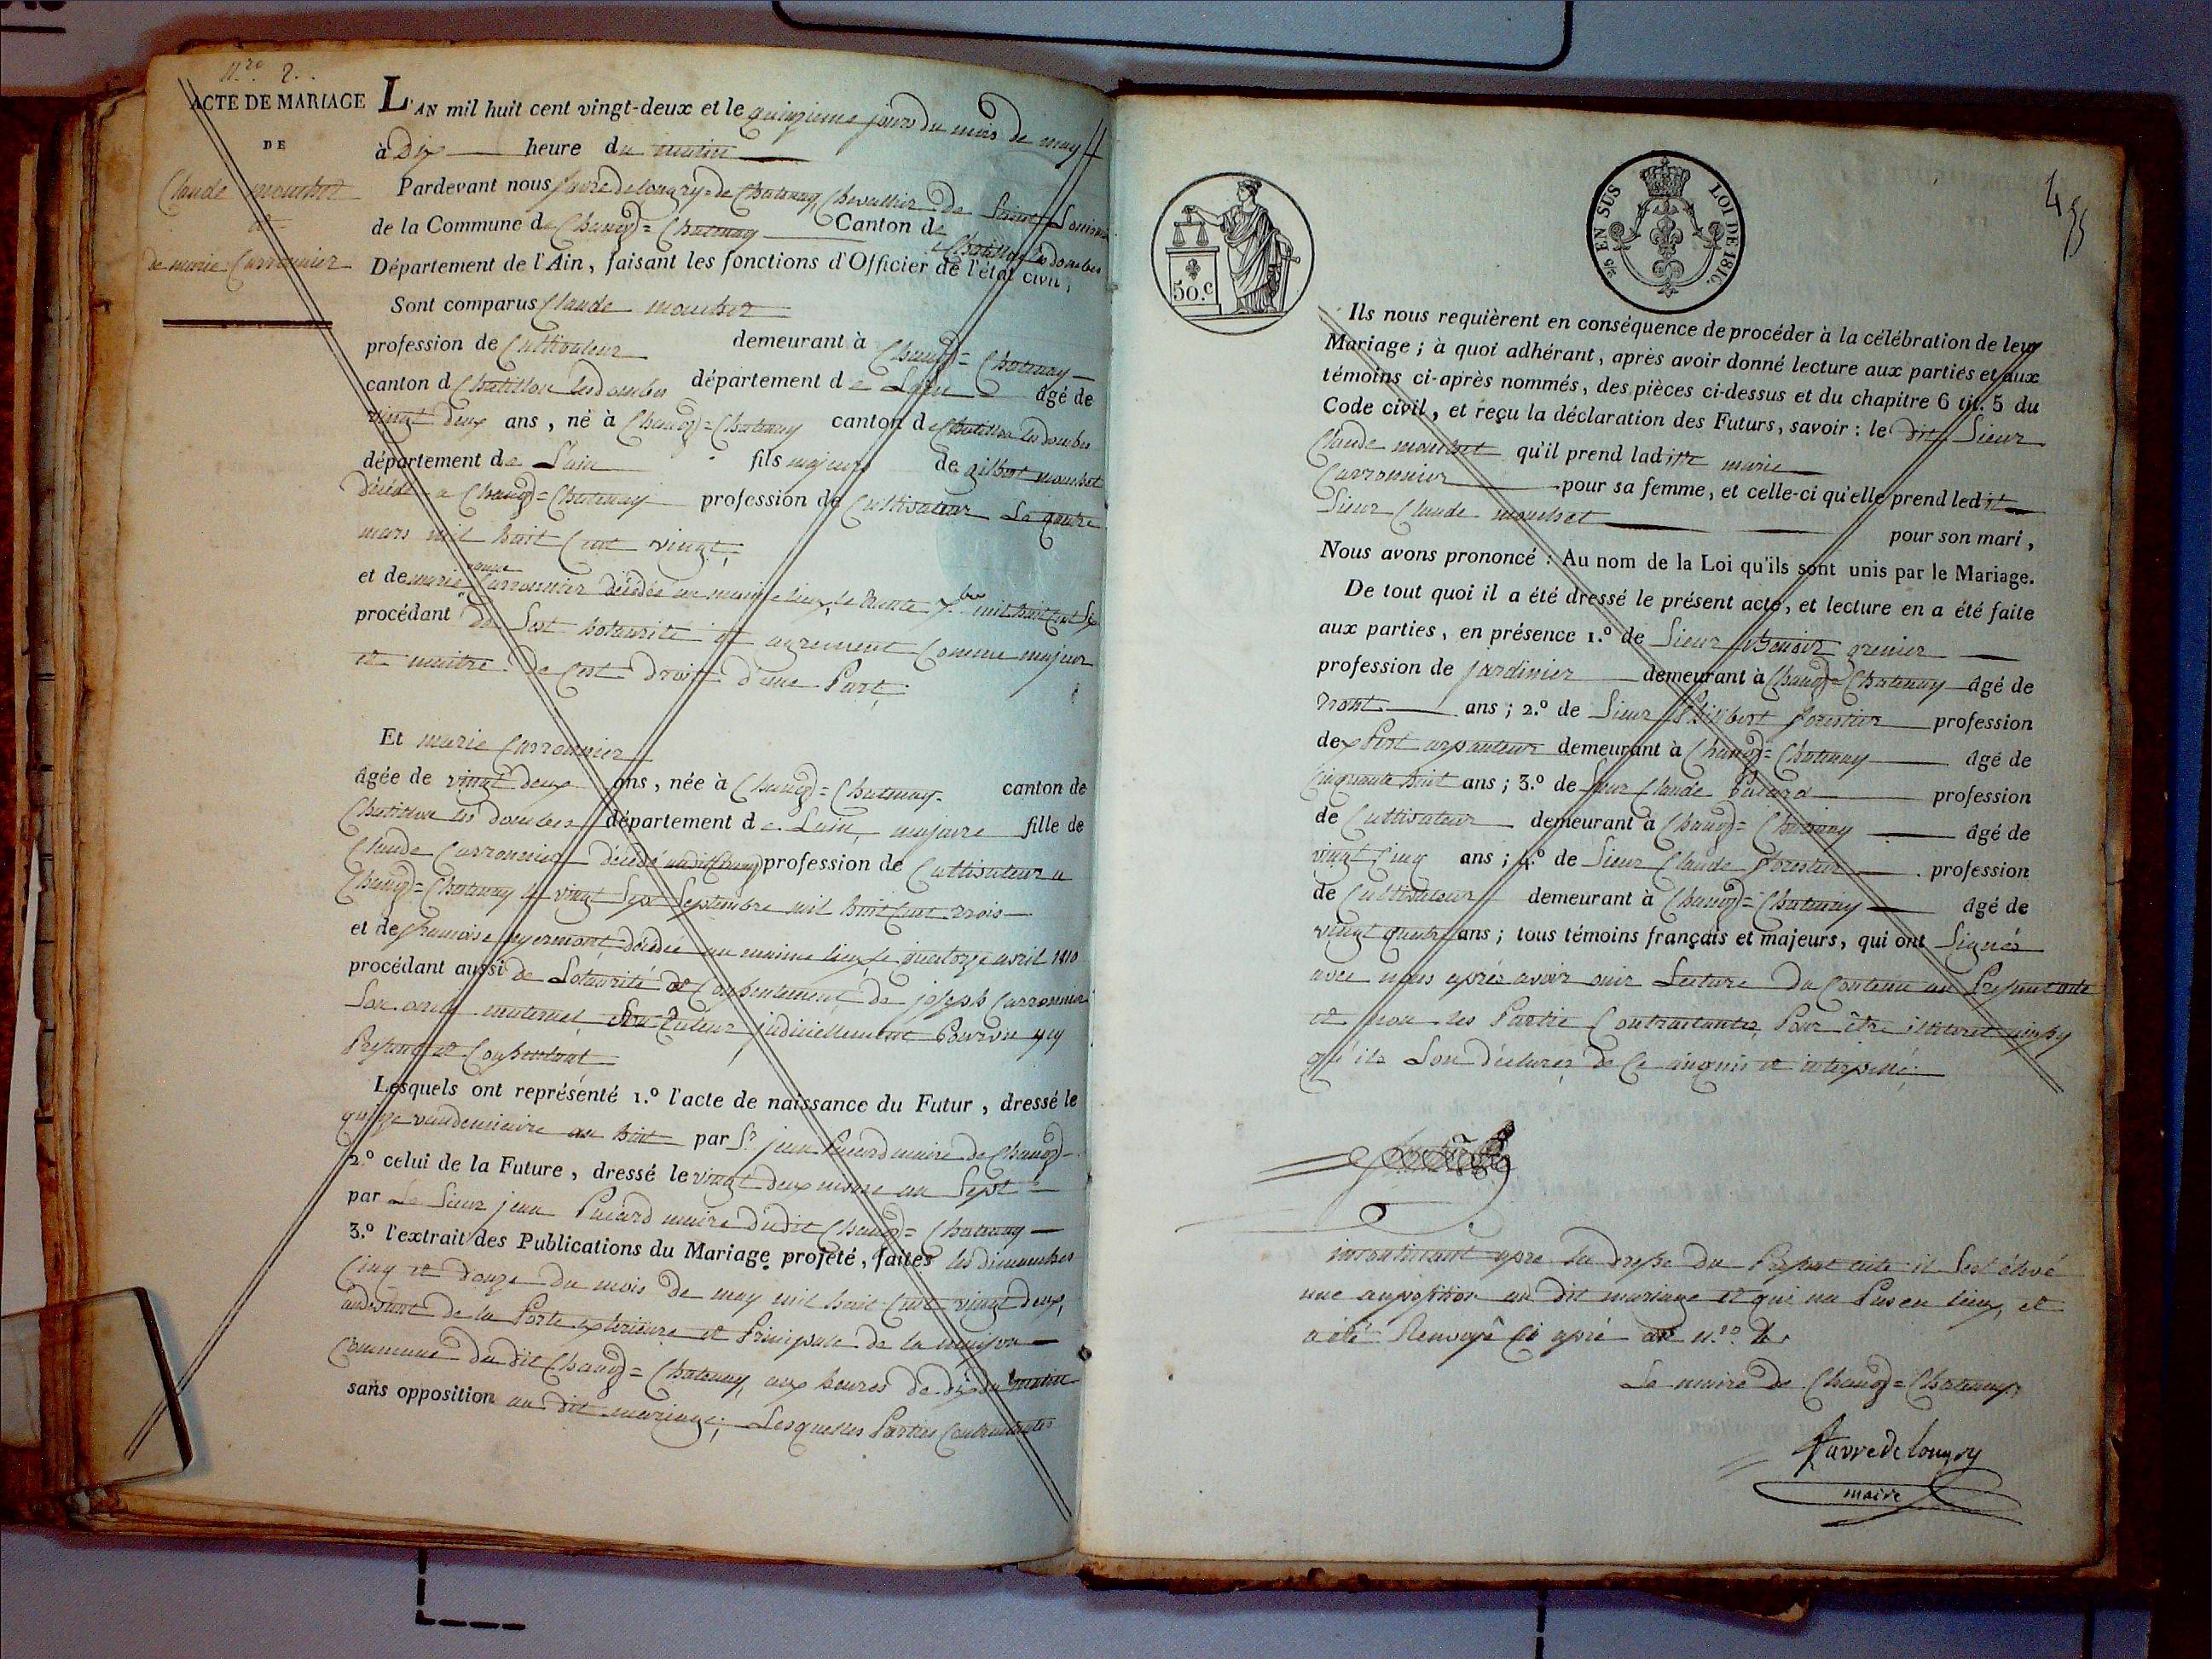 N.ro 2.
ACTE DE MARIAGE
DE
Claude mouchet
et
de marie Carronnier
L'AN mil huit cent vingt-deux et le quinzieme jours du mois de may
à Dix heure du matin
Pardevant nous favre de longry = de Chatenay, Chevallier de Saint Louis
de la Commune de Chanoz = Chatenay Canton de
Chatillon les dombes
Département de l'Ain, faisant les fonctions d'Officier de l'état civil,
Sont comparus Claude mouchet
profession de Cultivateur demeurant à Chanoz = Chatenay
canton d Chatillon les dombes département de Lain âgé de
vingt deux ans, né à Chanoz = Chatenay canton de Chatillon les dombes
département de Lain fils majeur de gilbert mouchet
décédé a Chanoz = Chatenay profession de Cultivateur Le quatre
mars mil huit Cent vingt,
et de marie Carronnier décédée au maime lieux, le trente 7.bre mil huit Cent Six
procédant de Sest hotaurité et agrement Comme majeur
et maitre de Cest droit d'une Part,
Et marie Carronnier
âgée de vingt deux ans, née à Chanoz = Chatenay. canton de
Chatillon les dombes département de Lain, majeure fille de
Claude Carronnier décédé profession de Cultivateur a
Chanoz = Chatenay le vingt Sept Septembre mil huit Cent trois
et de francoise décédée au maime lieux, le quatorze avril 1810
procédant aussi de Lotaurité et Consentement de joseph Carronnier
Son oncle maternel Son tuteur judiciellement Pourvu ycy
Present et Consentant
Lesquels ont représenté 1.º l'acte de naissance du Futur, dressé le
quinze vandemiaire an huit par S.r jean Pucard maire de Chanoz
2.º celui de la Future, dressé le vingt deux nivose an Sept
par Le Sieur jean Pucard maire dudit Chanoz = Chatenay
3.º l'extrait des Publications du Mariage projeté, faites les dimanches
Cinq et douze du mois de may mil huit Cent vingt deux,
audevant de la Porte exterieure et Principale de la maison
Commune du dit Chanoz = Chatenay, aux heures de dix du matin
sans opposition au dit mariage; Lesquelles Parties Contractantes
50.c
EN SUS
LOI DE 1816.
Ils nous requièrent en conséquence de procéder à la célébration de leur
Mariage; à quoi adhérant, après avoir donné lecture aux parties et aux
témoins ci-après nommés, des pièces ci-dessus et du chapitre 6 tit. 5 du
Code civil, et reçu la déclaration des Futurs, savoir: le dit Sieur
Claude mouchet qu'il prend laditte marie
Carronnier pour sa femme, et celle-ci qu'elle prend ledit
Sieur Claude mouchet pour son mari,
Nous avons prononcé: Au nom de la Loi qu'ils sont unis par le Mariage.
De tout quoi il a été dressé le présent acte, et lecture en a été faite
aux parties, en présence 1.º de Sieur Benoit grenier
profession de jardinier demeurant à Chanoz = Chatenay âgé de
trente ans; 2.º de Sieur Philibert forestier profession
dexpert arpanteur demeurant à Chanoz = Chatenay âgé de
Cinquante huit ans; 3.º de Sieur Claude profession
de Cultivateur demeurant à Chanoz = Chatenay âgé de
vingt Cinq ans; 4.º de Sieur Claude forestier profession
de Cultivateur demeurant à Chanoz = Chatenay âgé de
vingt quatre ans; tous témoins français et majeurs, qui ont Signés
avec nous après avoir ouir Lecture du Contenu au Present acte
et non les Partie Contractantes, Pour être illiteret
qu'ils Lon déclarer de Ce anquis et interpellé.
incontinant apre la dresse du Present acte il Sest élevé
une anposition au dit mariage et qui na Pas eu lieux, et
a été Renvoyé Ci apré au N.ro 4.
Le maire de Chanoz = Chatenay,
Favre de longry
maire